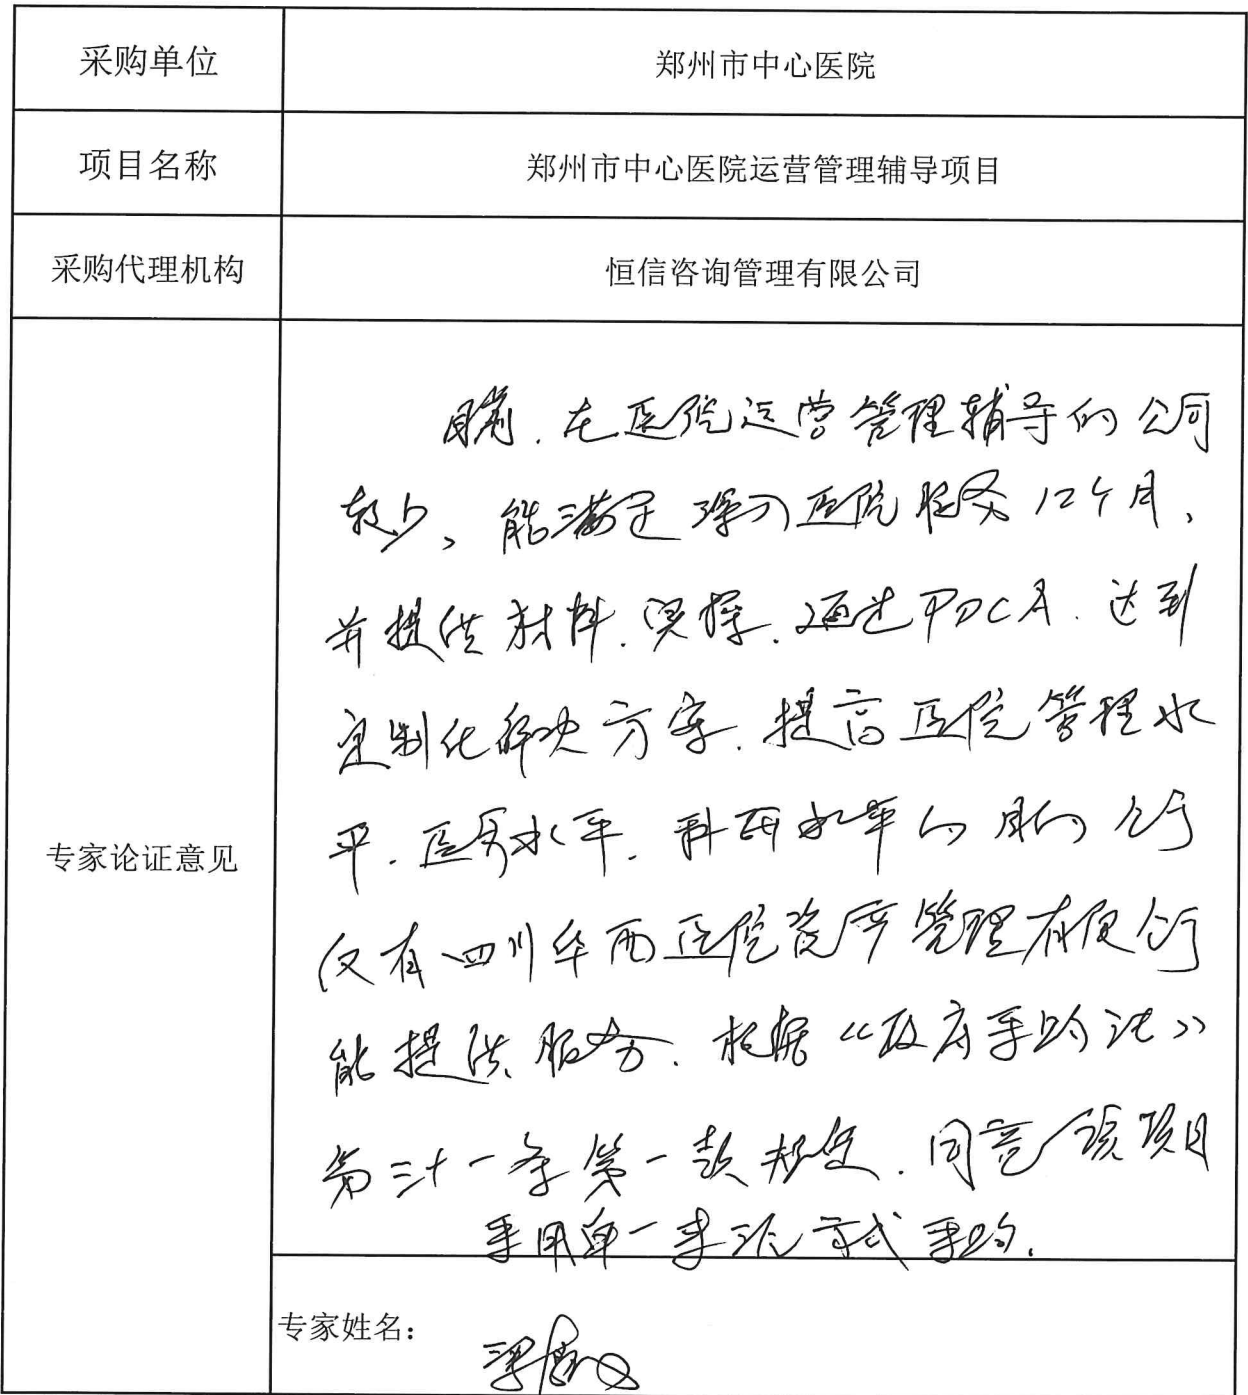 采购单位
郑州市中心医院
项目名称
郑州市中心医院运营管理辅导项目
采购代理机构
恒信咨询管理有限公司
专家论证意见
目前.在医院运营管理辅导的公司
较少。能满足深入医院服务12个月,
并提供材料.支撑.通过PDCA.达到
定制化解决方案.提高医院管理水
平.医务水平.科研水平的目的公司
仅有四川华西医院资产管理有限公司
能提供服务.根据《政府采购法》
第三十一条第一款规定.同意该项目
采用单一来源方式采购.
专家姓名: